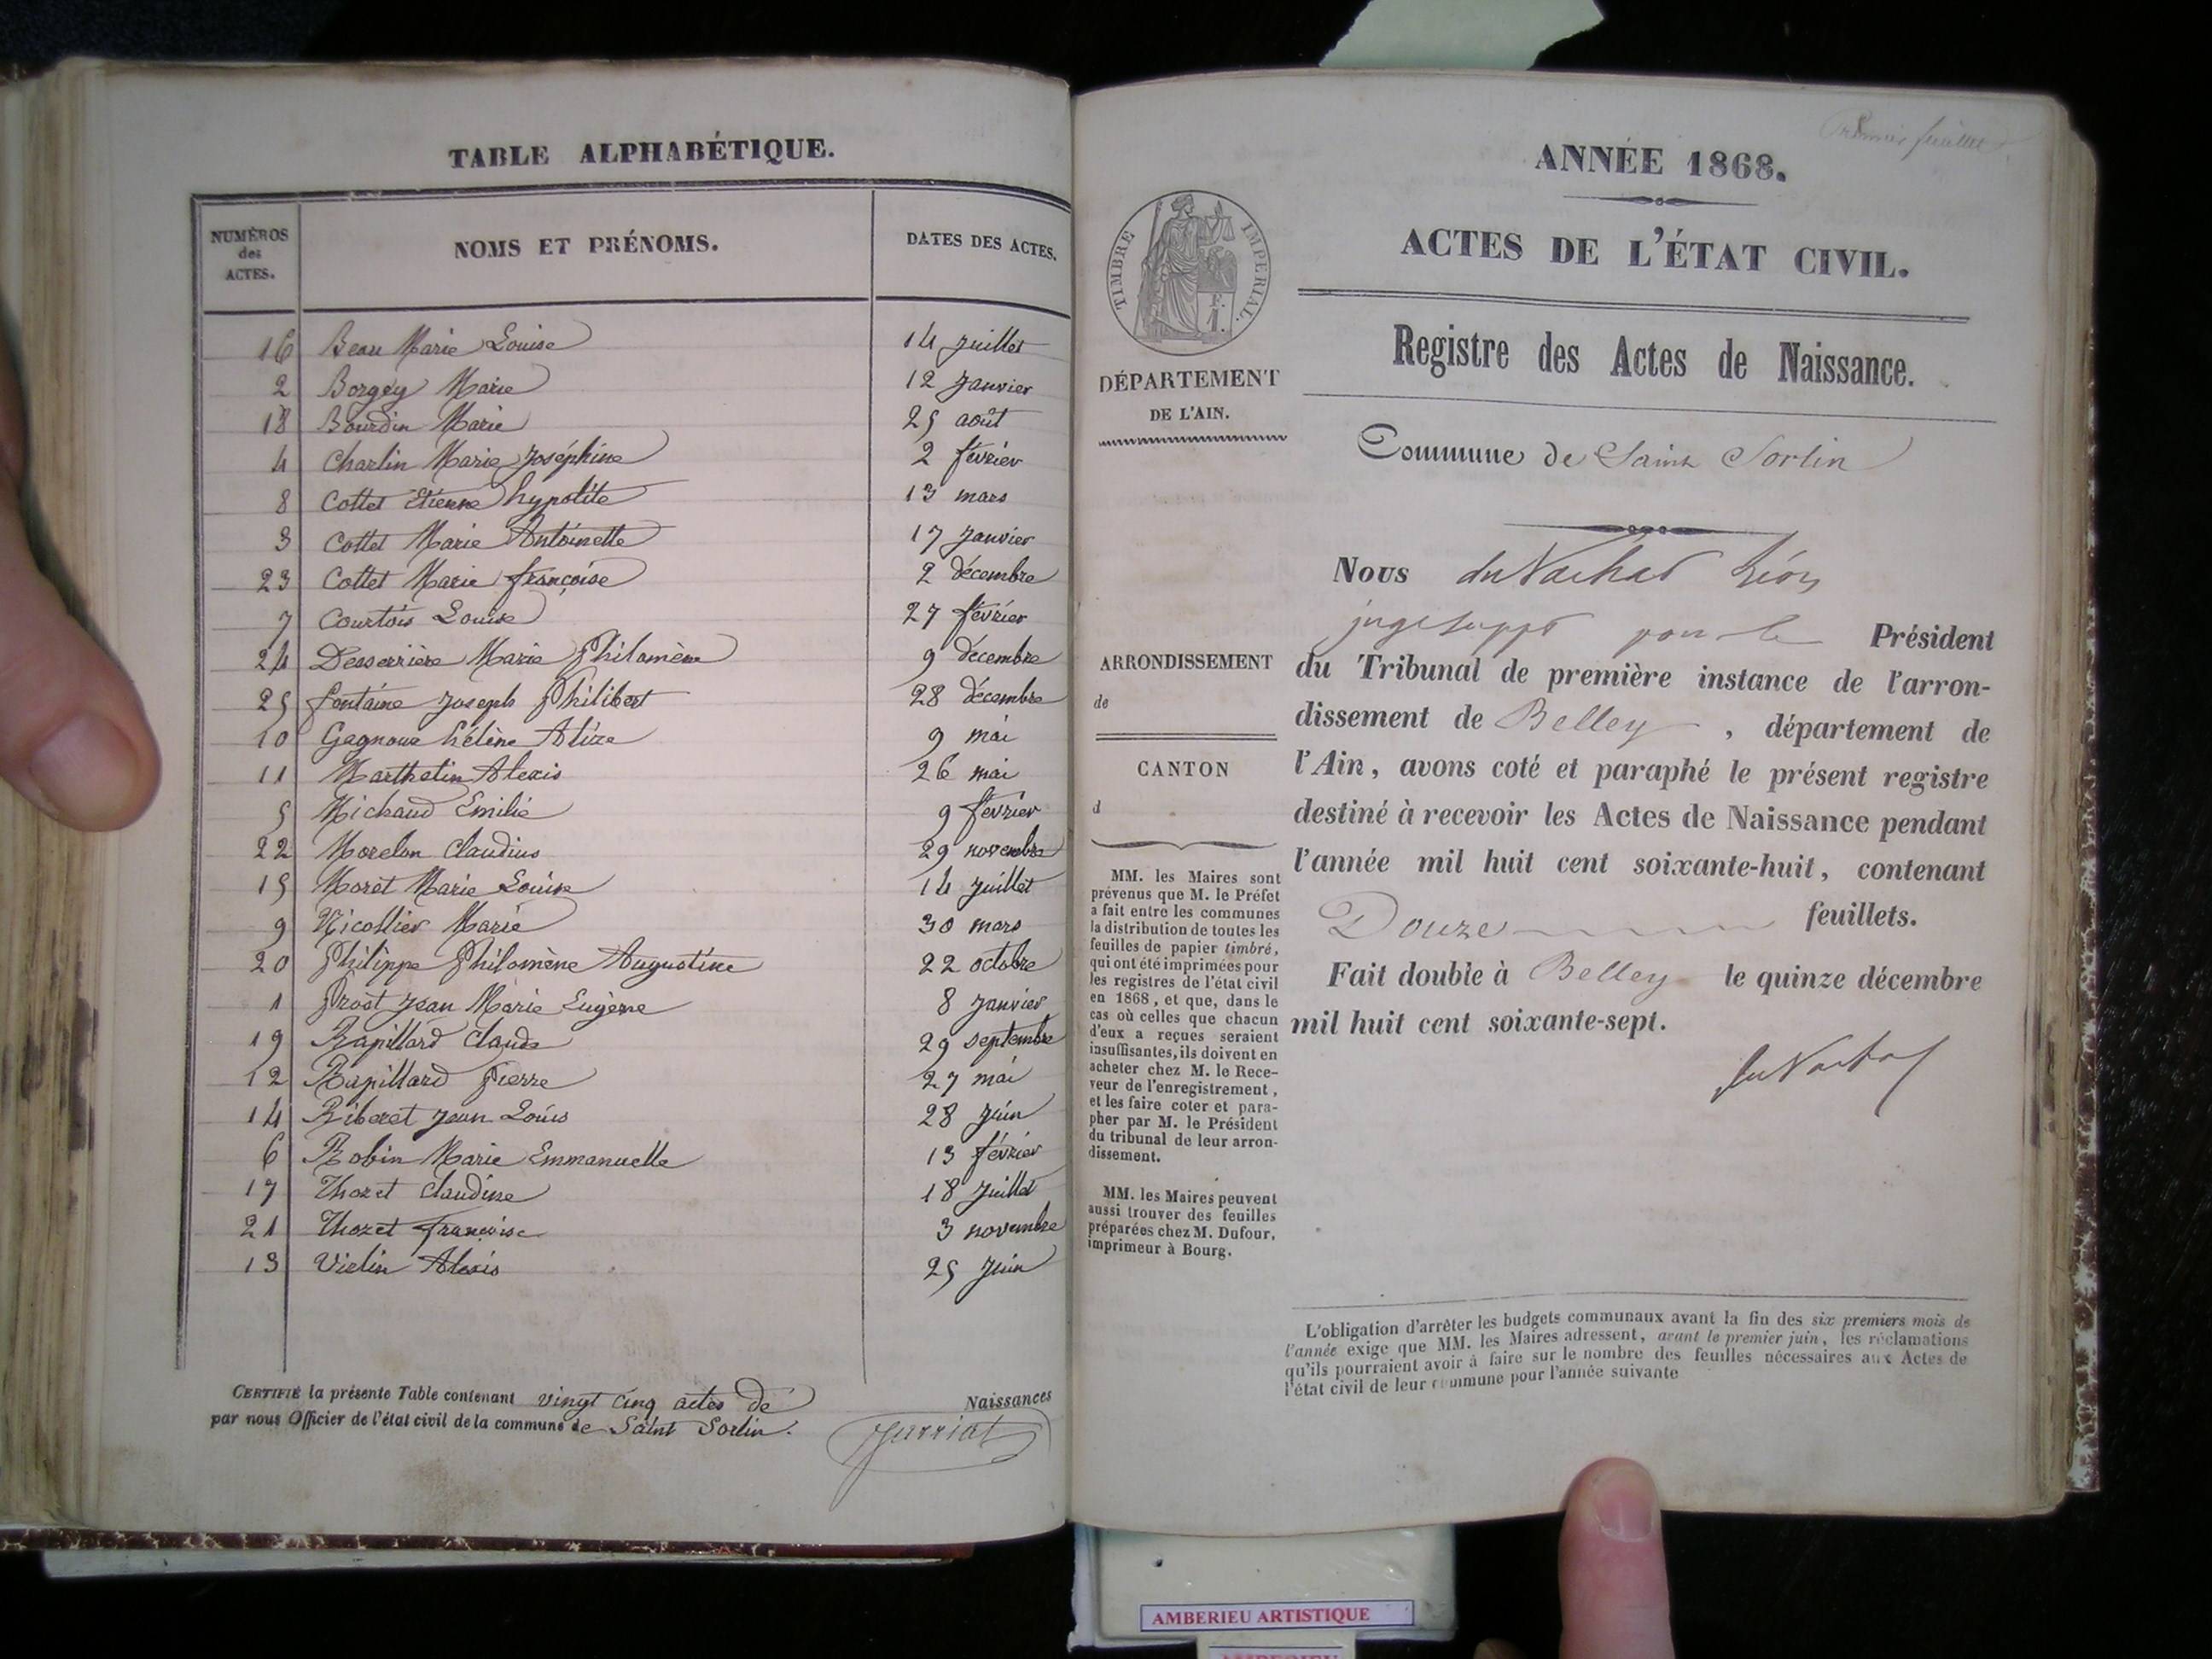 TABLE ALPHABÉTIQUE.
NUMÉROS des ACTES. NOMS ET PRÉNOMS. DATES DES ACTES.
16 Beau Marie Louise 14 juillet
2 Borgey Marie 12 Janvier
18 Bourdin Marie 25 août
4 Charlin Marie Joséphine 2 février
8 Cottet Etienne hypolite 13 mars
3 Cottet Marie Antoinette 17 Janvier
23 Cottet Marie françoise 2 décembre
7 Courtois Louise 27 février
24 Desserrière Marie Philomène 9 décembre
25 fontaine Joseph Philibert 28 décembre
10 Gagnoux hélène Alize 9 mai
11 Marthelin Alexis 26 mai
5 Michaud Emilie 9 février
22 Morelon Claudius 29 novembre
15 Moret Marie Louise 14 Juillet
9 Nicollier Marie 30 mars
20 Philippe Philomène Augustine 22 octobre
1 Prost Jean Marie Eugène 8 Janvier
19 Rapillard Claude 29 septembre
12 Rapillard Pierre 27 mai
14 Riberet Jean Louis 28 Juin
6 Robin Marie Emmanuelle 13 février
17 Thozet Claudine 18 Juillet
21 Thozet françoise 3 novembre
13 Vielin Alexis 25 Juin
CERTIFIÉ la présente Table contenant vingt cinq actes de Naissances
par nous Officier de l'état civil de la commune de Saint Sorlin.
Jarriat
Premier feuillet
ANNÉE 1868.
ACTES DE L'ÉTAT CIVIL.
Registre des Actes de Naissance.
TIMBRE IMPERIAL
1 F.
DÉPARTEMENT
DE L'AIN.
ARRONDISSEMENT
de
CANTON
d
MM. les Maires sont
prévenus que M. le Préfet
a fait entre les communes
la distribution de toutes les
feuilles de papier timbré,
qui ont été imprimées pour
les registres de l'état civil
en 1868, et que, dans le
cas où celles que chacun
d'eux a reçues seraient
insuffisantes, ils doivent en
acheter chez M. le Rece-
veur de l'enregistrement,
et les faire coter et para-
pher par M. le Président
du tribunal de leur arron-
dissement.
MM. les Maires peuvent
aussi trouver des feuilles
préparées chez M. Dufour,
imprimeur à Bourg.
Commune de Saint Sorlin
Nous Léon
juge suppt pour le Président
du Tribunal de première instance de l'arron-
dissement de Belley, département de
l'Ain, avons coté et paraphé le présent registre
destiné à recevoir les Actes de Naissance pendant
l'année mil huit cent soixante-huit, contenant
Douze feuillets.
Fait double à Belley le quinze décembre
mil huit cent soixante-sept.
L'obligation d'arrêter les budgets communaux avant la fin des six premiers mois de
l'année exige que MM. les Maires adressent, avant le premier juin, les réclamations
qu'ils pourraient avoir à faire sur le nombre des feuilles nécessaires aux Actes de
l'état civil de leur commune pour l'année suivante
AMBERIEU ARTISTIQUE
AMBERIEU